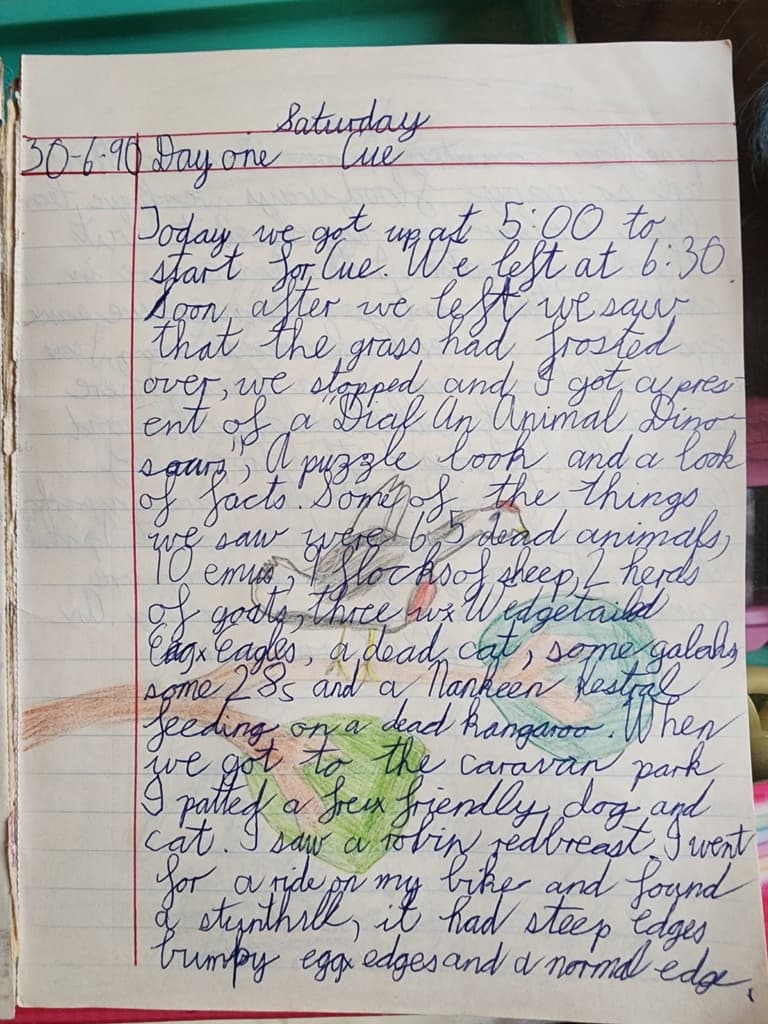 Saturday
30-6-90 Day one Cue
Today we got up at 5:00 to
start for Cue. We left at 6:30
Soon after we left we saw
that the grass had frosted
over, we stopped and I got a pres-
ent of a "Dial An Animal Dino-
saurs", A puzzle book and a book
of facts. Some of the things
we saw were 65 dead animals,
10 emus, 9 flocks of sheep, 2 herds
of goats, three wx Wedgetaild
Eagx Eagles, a dead cat, some galahs,
some 28s and a Nankeen Kestral
feeding on a dead kangaroo. When
we got to the caravan park
I patted a freix friendly dog and
cat. I saw a robin redbreast. I went
for a ride on my bike and found
a stunthill, it had steep edges
bumpy eggx edges and a normal edge.